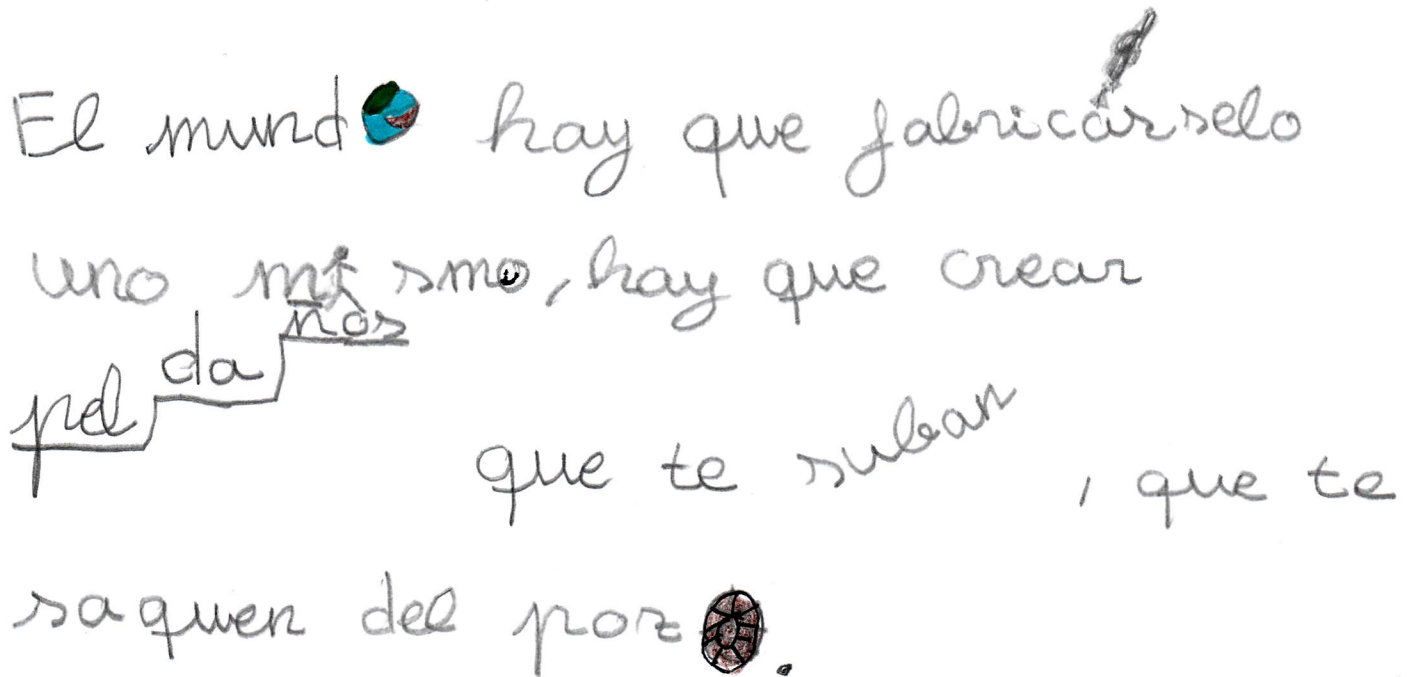 El mundo hay que fabricárselo
uno mismo, hay que crear
peldaños que te suban, que te
saquen del pozo.